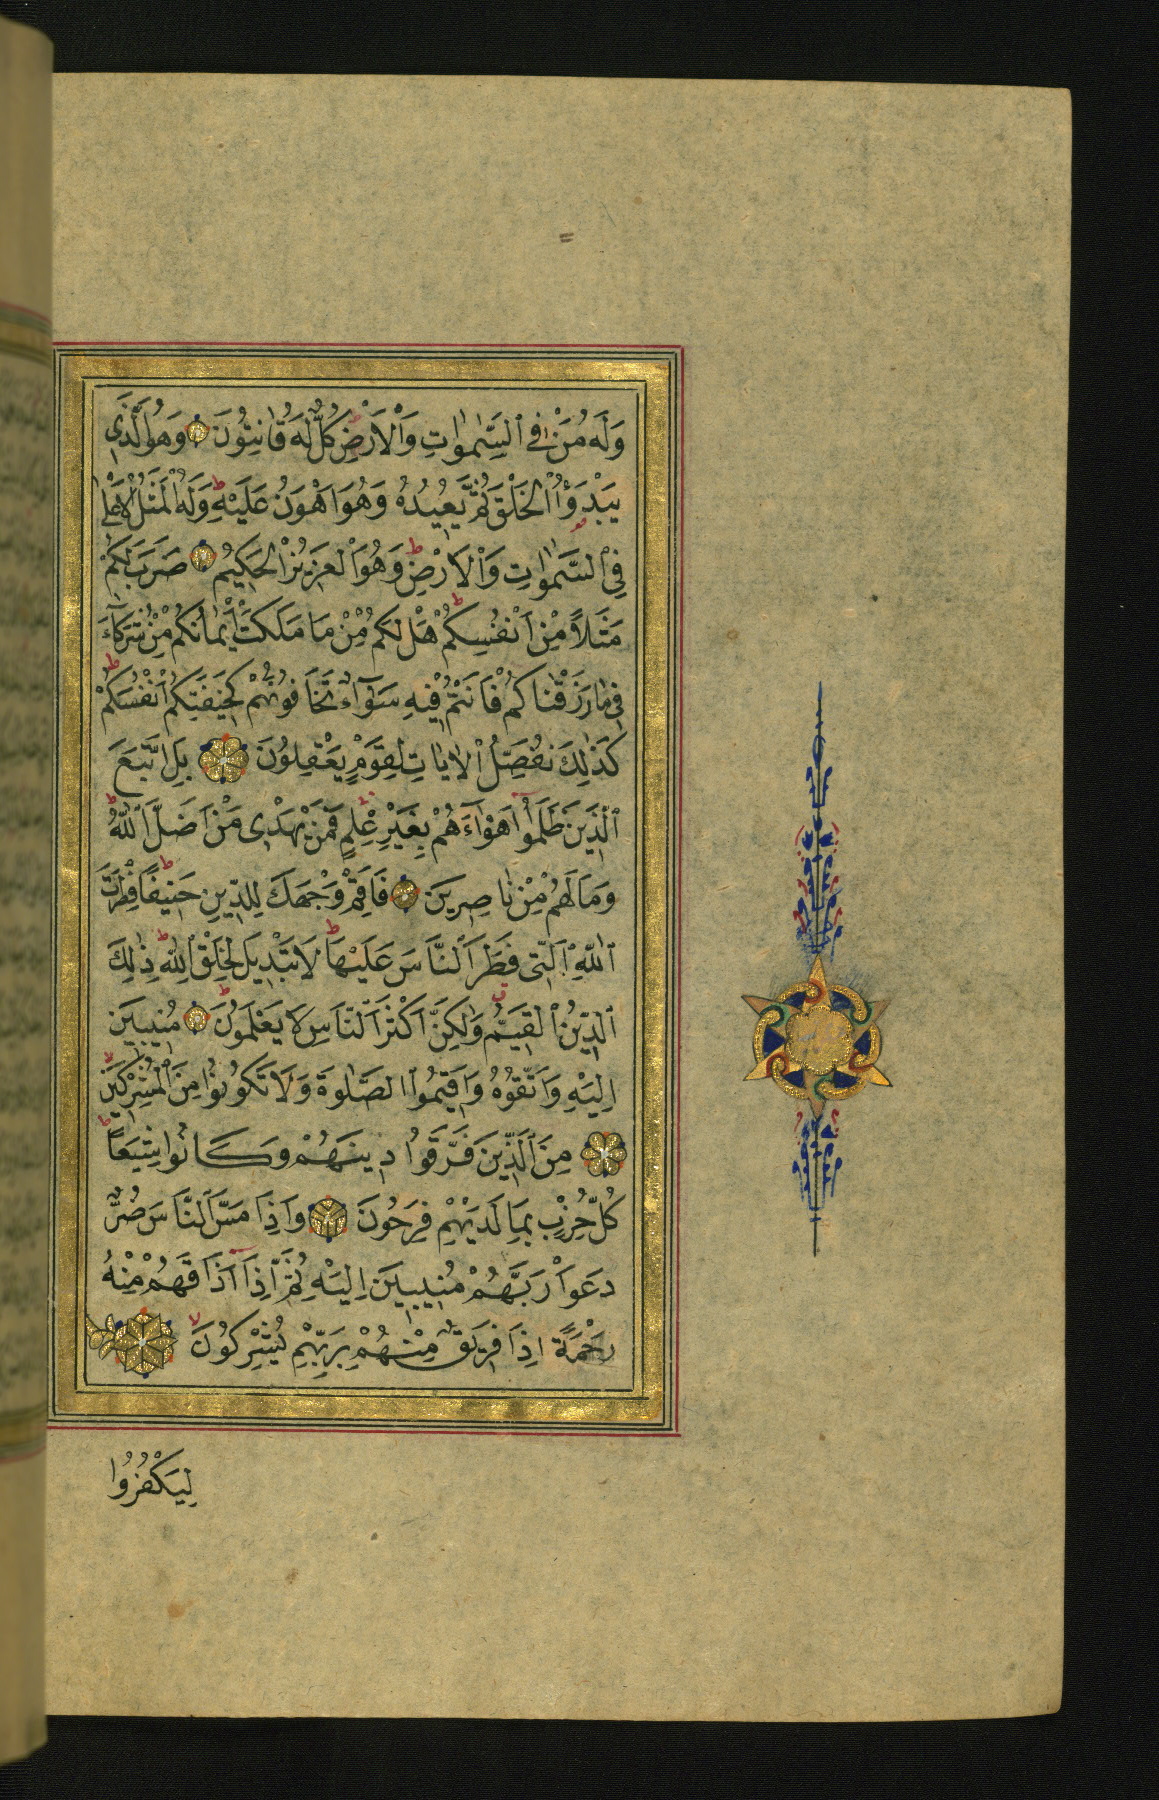 وَلَهُ مَنْ فِي ٱلسَّمٰوَاتِ وَٱلْاَرْضِ كُلٌّ لَهُ قَانِتُونَ وَهُوَ ٱلَّذِي
يَبْدَؤُا ٱلْخَلْقَ ثُمَّ يُعِيدُهُ وَهُوَ اَهْوَنُ عَلَيْهِ وَلَهُ ٱلْمَثَلُ ٱلْاَعْلٰى
فِي ٱلسَّمٰوَاتِ وَٱلْاَرْضِ وَهُوَ ٱلْعَزِيزُ ٱلْحَكِيمُ ضَرَبَ لَكُمْ
مَثَلًا مِنْ اَنْفُسِكُمْ هَلْ لَكُمْ مِنْ مَا مَلَكَتْ اَيْمَانُكُمْ مِنْ شُرَكَآءَ
فِي مَا رَزَقْنَاكُمْ فَاَنْتُمْ فِيهِ سَوَآءٌ تَخَافُونَهُمْ كَخِيفَتِكُمْ اَنْفُسَكُمْ
كَذٰلِكَ نُفَصِّلُ ٱلْاٰيَاتِ لِقَوْمٍ يَعْقِلُونَ بَلِ ٱتَّبَعَ
ٱلَّذِينَ ظَلَمُوا اَهْوَآءَهُمْ بِغَيْرِ عِلْمٍ فَمَنْ يَهْدِي مَنْ اَضَلَّ ٱللّٰهُ
وَمَا لَهُمْ مِنْ نَاصِرِينَ فَاَقِمْ وَجْهَكَ لِلدِّينِ حَنِيفًا فِطْرَتَ
ٱللّٰهِ ٱلَّتِي فَطَرَ ٱلنَّاسَ عَلَيْهَا لَا تَبْدِيلَ لِخَلْقِ ٱللّٰهِ ذٰلِكَ
ٱلدِّينُ ٱلْقَيِّمُ وَلٰكِنَّ اَكْثَرَ ٱلنَّاسِ لَا يَعْلَمُونَ مُنِيبِينَ
اِلَيْهِ وَٱتَّقُوهُ وَاَقِيمُوا ٱلصَّلٰوةَ وَلَا تَكُونُوا مِنَ ٱلْمُشْرِكِينَ
مِنَ ٱلَّذِينَ فَرَّقُوا دِينَهُمْ وَكَانُوا شِيَعًا
كُلُّ حِزْبٍ بِمَا لَدَيْهِمْ فَرِحُونَ وَاِذَا مَسَّ ٱلنَّاسَ ضُرٌّ
دَعَوْا رَبَّهُمْ مُنِيبِينَ اِلَيْهِ ثُمَّ اِذَا اَذَاقَهُمْ مِنْهُ
رَحْمَةً اِذَا فَرِيقٌ مِنْهُمْ بِرَبِّهِمْ يُشْرِكُونَ
لِيَكْفُرُوا